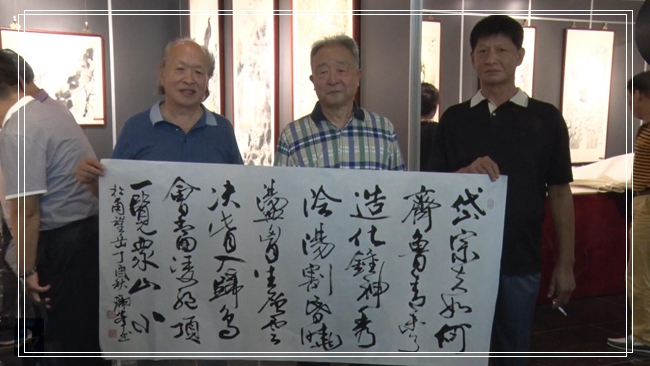 岱宗夫如何
齊魯青未了
造化鍾神秀
陰陽割昏曉
盪胸生層雲
決眥入歸鳥
會當凌絕頂
一覽衆山小
杜甫望岳丁酉秋